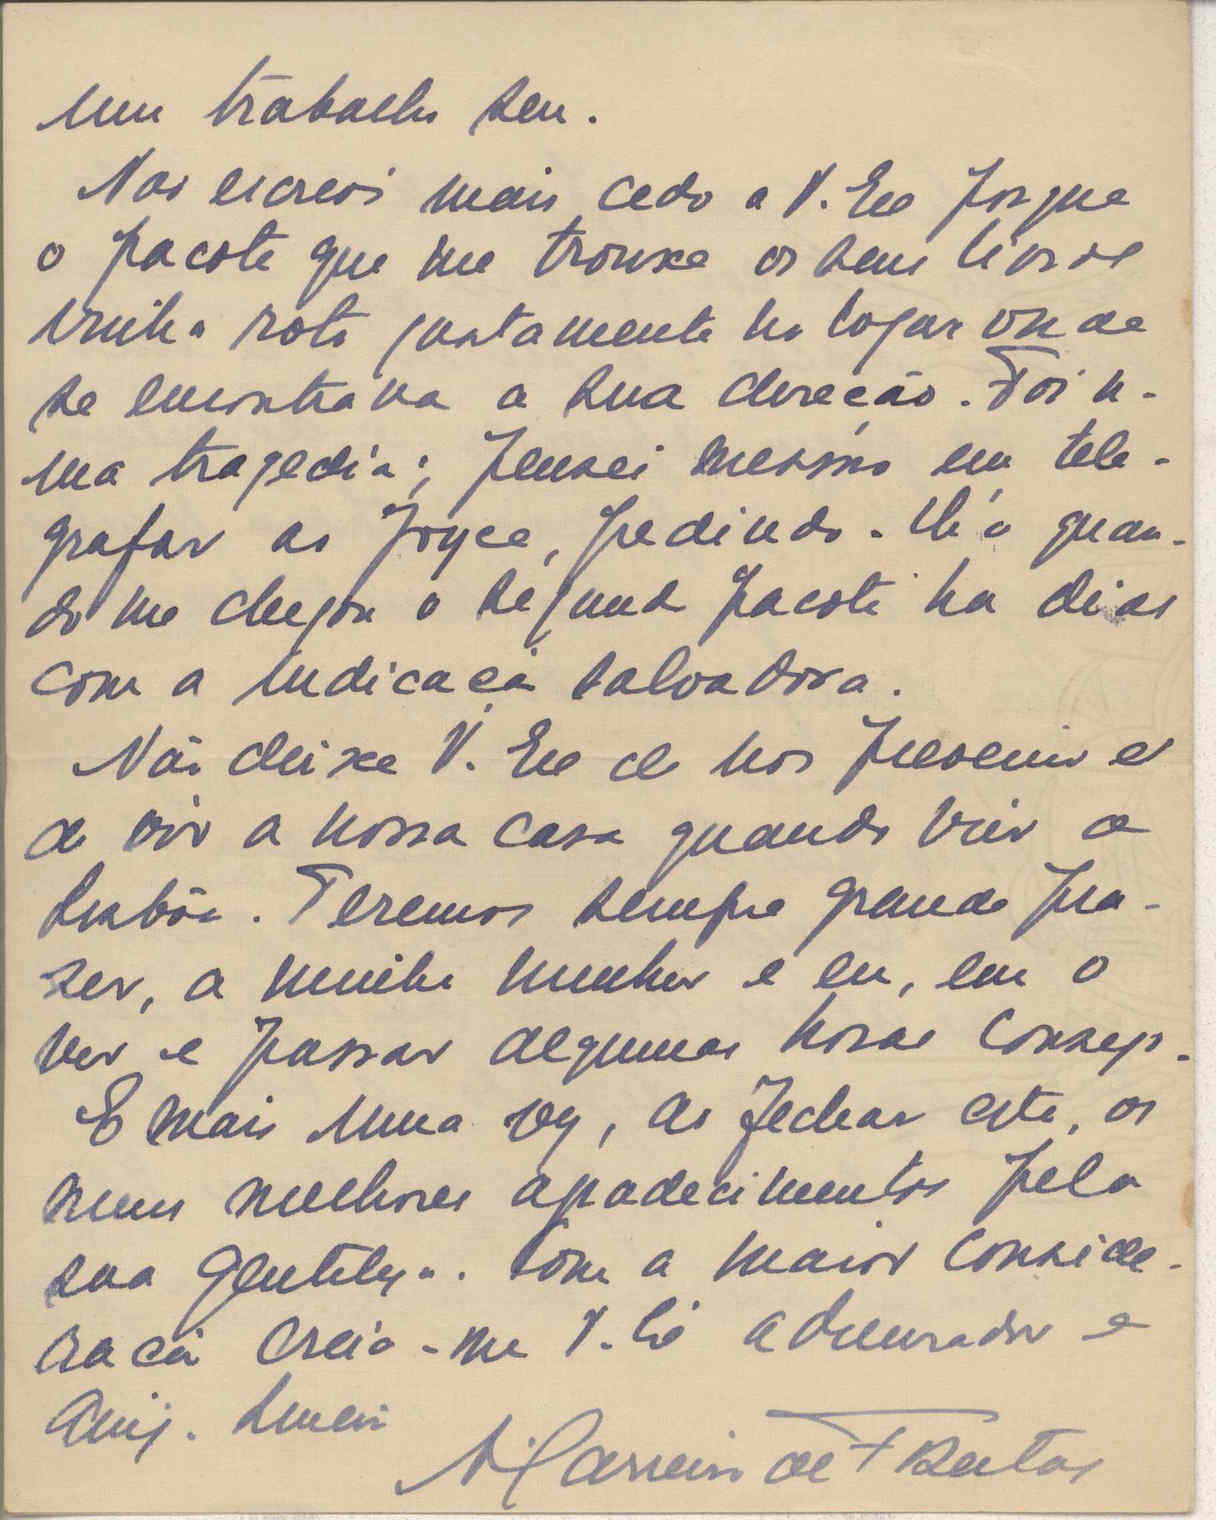 um trabalho seu.
Não escrevi mais cedo a V. Exª porque
o pacote que me trouxe os seus livros
vinha roto justamente no logar onde
se encontrava a sua direção. Foi u-
ma tragedia; pensei mesmo em tele-
grafar ao Joyce, pedindo-lh'a quan-
do me chegou o segundo pacote ha dias
com a indicação salvadora.
Não deixe V. Exª de nos prevenir e
de vir a nossa casa quando vier a
Lisbôa. Teremos sempre grande pra-
zer, a minha mulher e eu, em o
ver e passar algumas horas comsigo.
E mais uma vez, ao fechar esta, os
meus melhores agradecimentos pela
sua gentileza. Com a maior conside-
ração creia-me V. Exª admirador e
amigo. sincero
Carneiro de Freitas